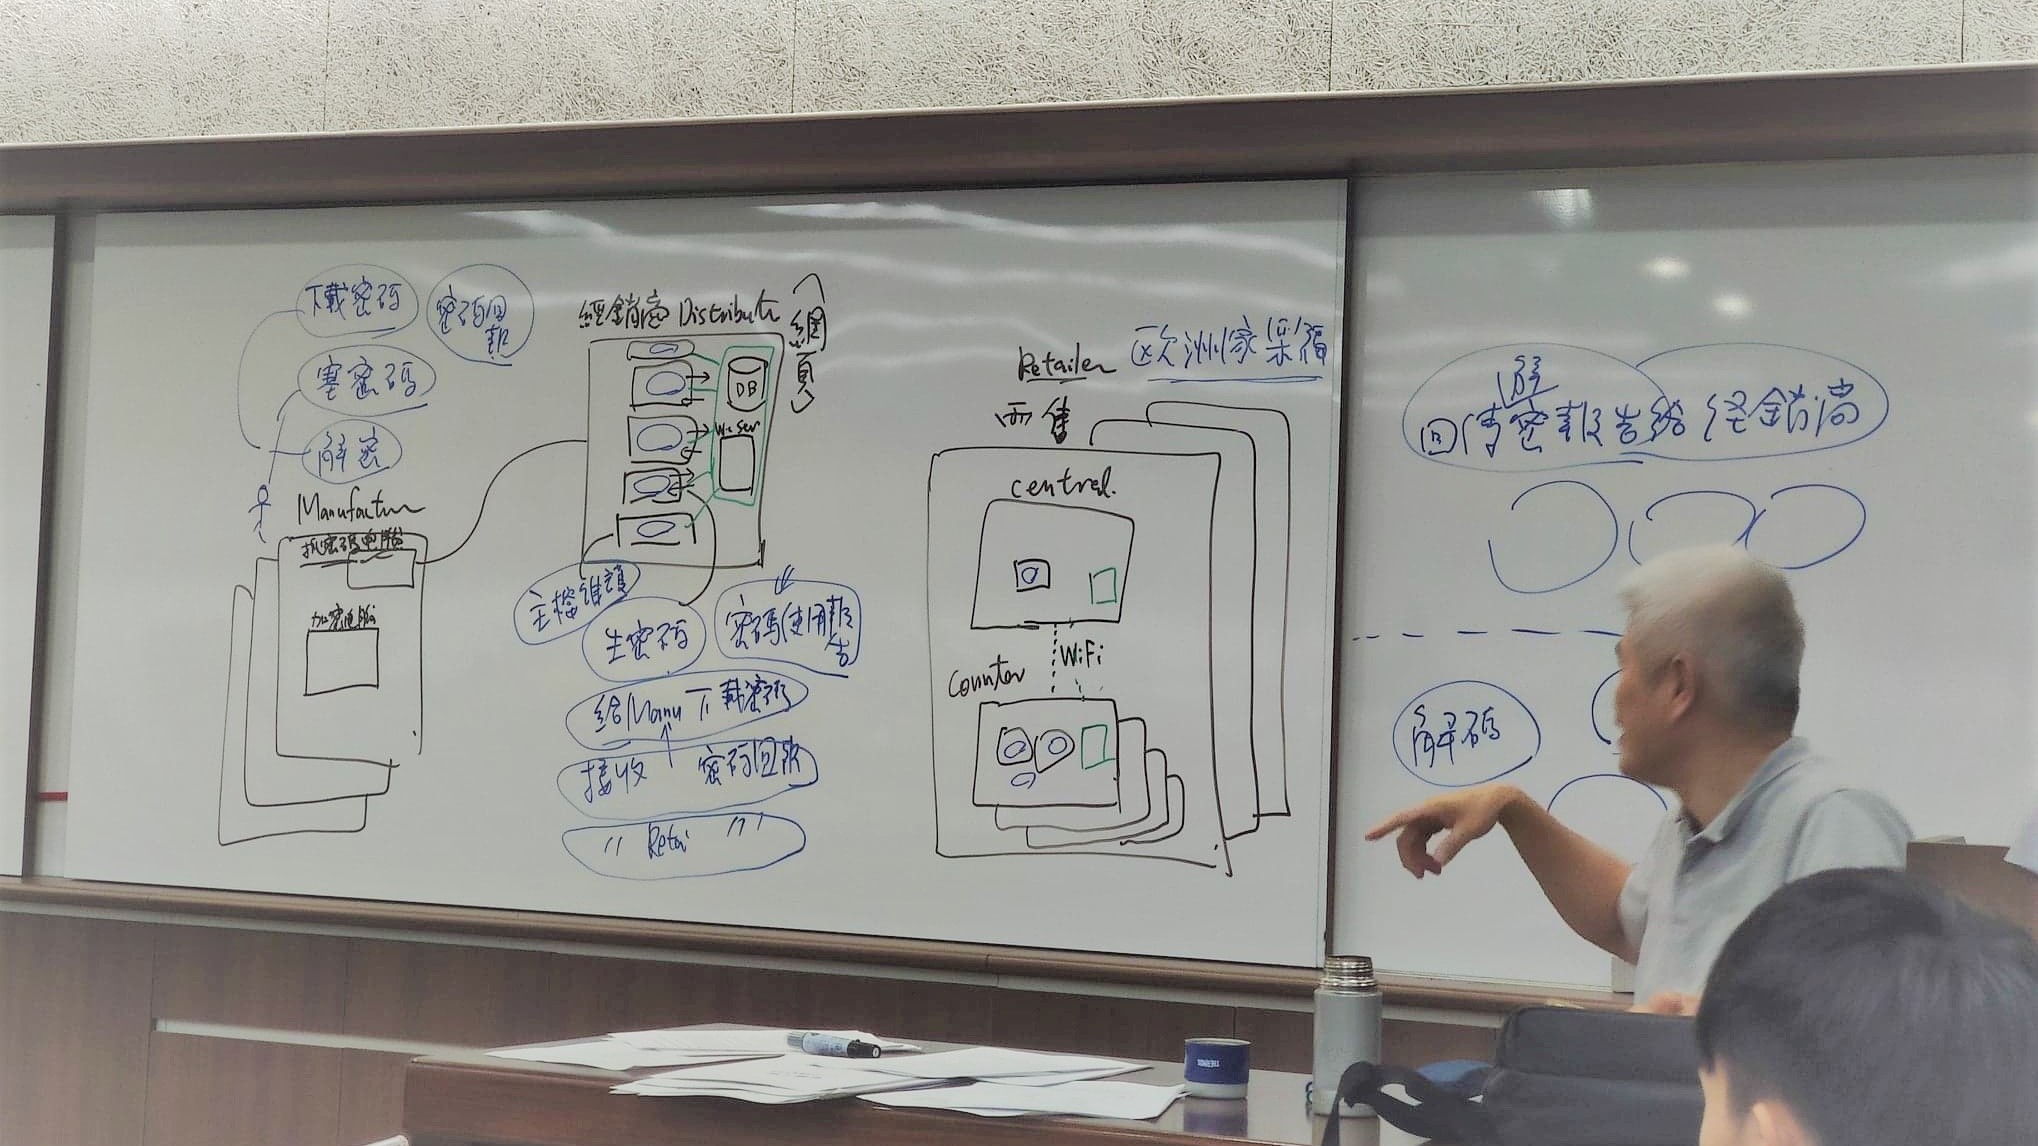 下載密碼
密碼回報
塞密碼
解密
Manufactur
抓密碼電腦
加密電腦
經銷商 Distributor
(網頁)
DB
W. Ser
主檔維護
生密碼
密碼使用報告
給Manu下載密碼
接收 密碼回報
" Retai "
Retailer 欧洲家樂福
零售
central
WiFi
Counter
解
回傳密報告給 经銷商
解碼
THERMOS